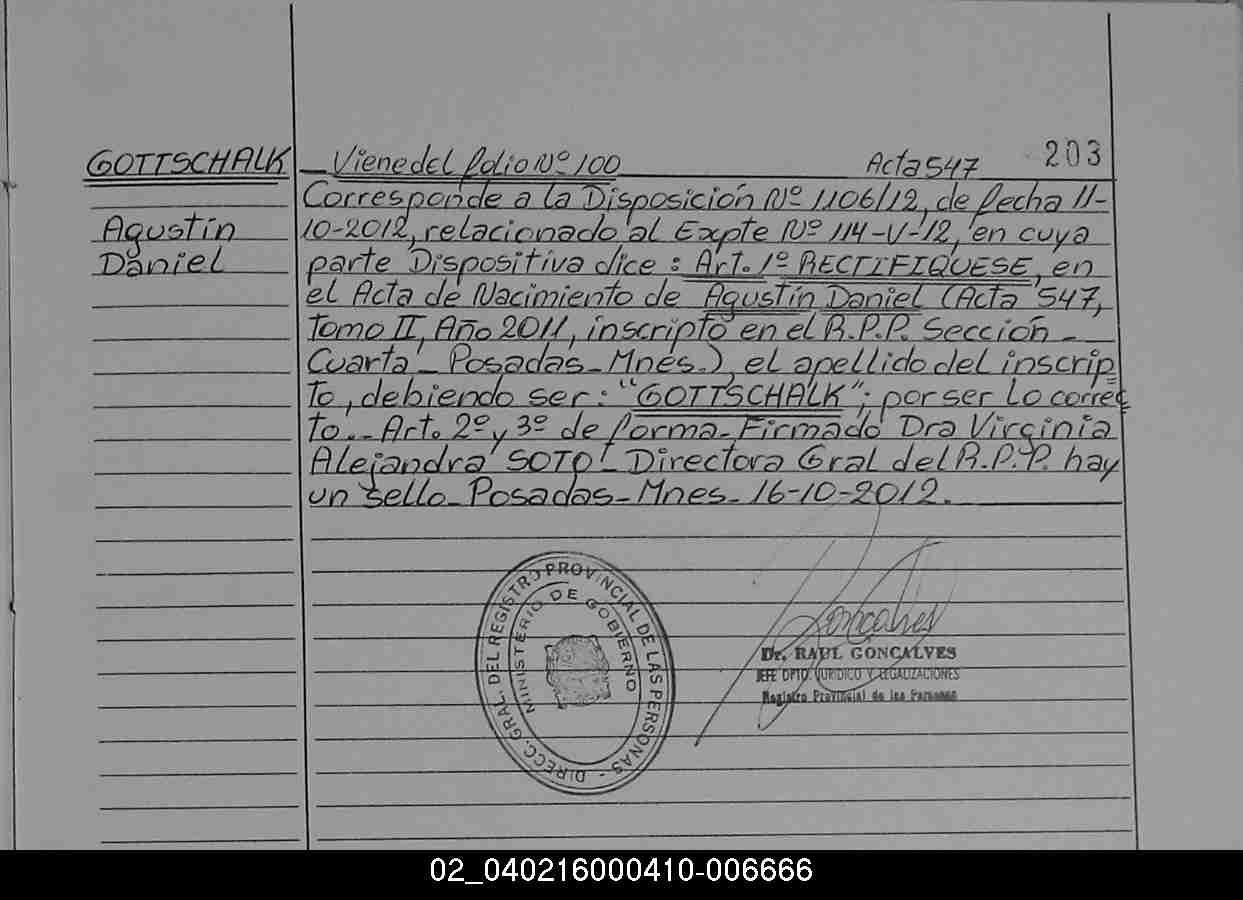 203
GOTTSCHALK
Agustín
Daniel
_ Viene del folio Nº 100 Acta 547
Corresponde a la Disposición Nº 1106/12, de fecha 11-
10-2012, relacionado al Expte Nº 114-V-12, en cuya
parte Dispositiva dice : Art. 1º RECTIFIQUESE, en
el Acta de Nacimiento de Agustín Daniel (Acta 547,
Tomo II, Año 2011, inscripto en el R.P.P. Sección -
Cuarta - Posadas - Mnes.), el apellido del inscrip=
to, debiendo ser: "GOTTSCHALK"; por ser lo correc=
to.- Art. 2º y 3º de forma - Firmado Dra Virginia
Alejandra SOTO - Directora Gral del R.P.P. hay
un sello - Posadas - Mnes - 16-10-2012.
DIRECC. GRAL. DEL REGISTRO PROVINCIAL DE LAS PERSONAS -
MINISTERIO DE GOBIERNO
Goncalves
Dr. RAUL GONCALVES
JEFE DPTO. JURIDICO Y LEGALIZACIONES
Registro Provincial de las Personas
02_040216000410-006666